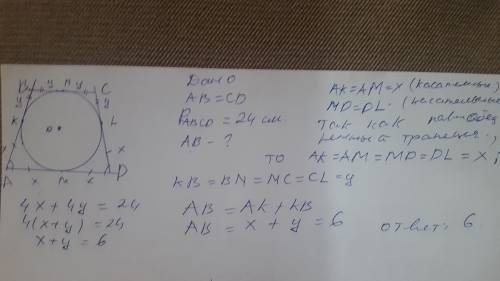 Дано
AB = CD
P ABCD = 24 см
AB - ?
AK = AM = x (касательные)
MD = DL - (касательные
так как равнобед
ренный трапеция,
то AK = AM = MD = DL = x;
KB = BN = MC = CL = y
AB = AK + KB
AB = x + y = 6
ответ: 6
B y n y C
y y
K O L
x x
A x M x D
4x + 4y = 24
4(x+y) = 24
x + y = 6